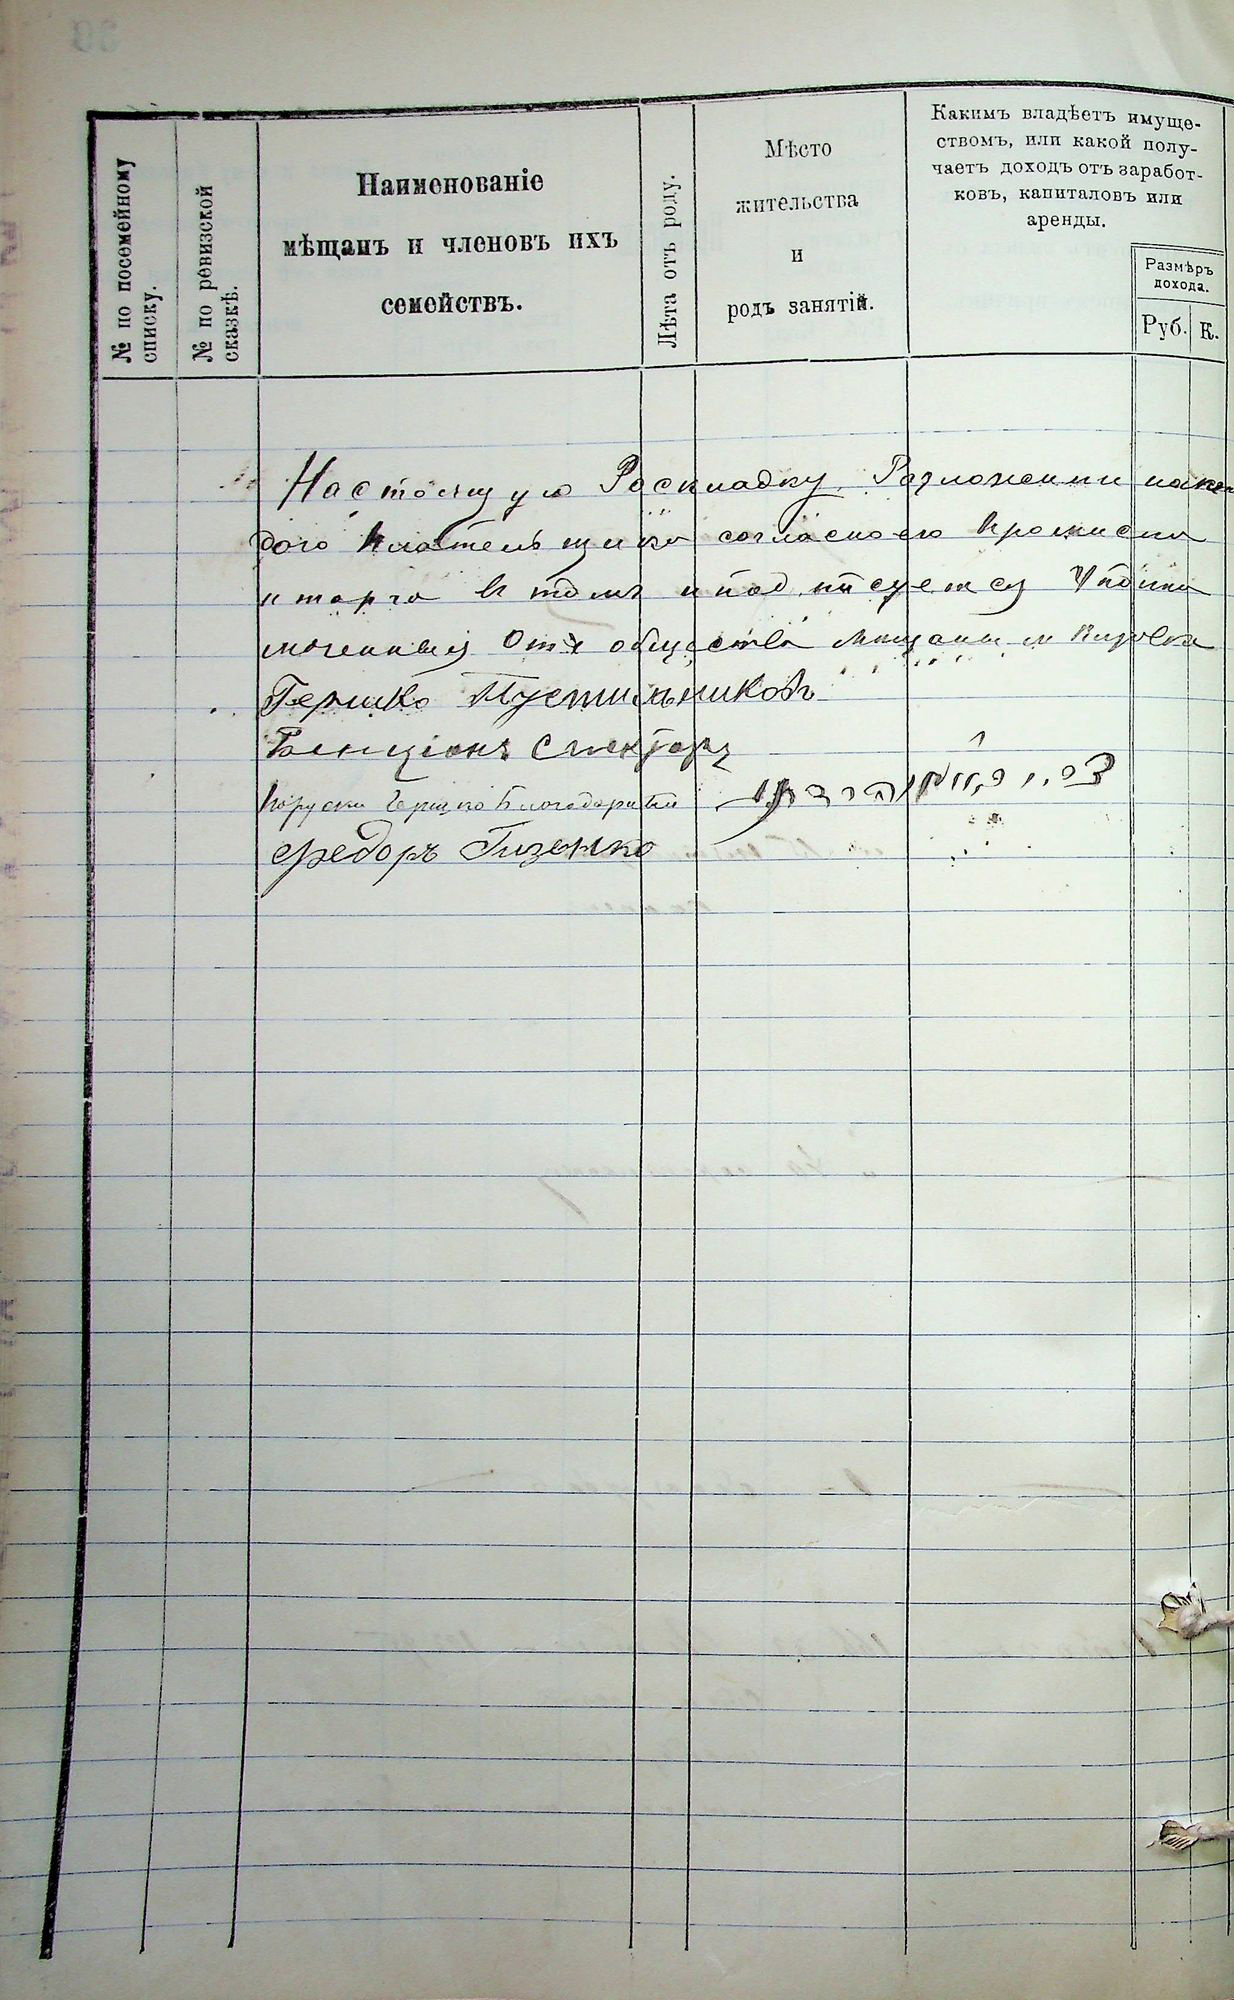 № по посемейному
списку.
№ по ревизской
сказкѣ.
Наименованіе
мѣщанъ и членовъ ихъ
семействъ.
Лѣта отъ роду.
Мѣсто
жительства
и
родъ занятій.
Какимъ владѣетъ имуще-
ствомъ, или какой полу-
чаетъ доходъ отъ заработ-
ковъ, капиталовъ или
аренды.
Размѣръ
дохода.
Руб.
К.
Настоящую Роскладку Разложении на каж
дого плательщика согласно его промисла
и торга в томъ и подписуемся Уполно
моченныя Отъ общества мещанъ м
Гершко Пустильниковъ
Бенціонъ Спекторъ
Гершко Благодарный
Федоръ Гизенко